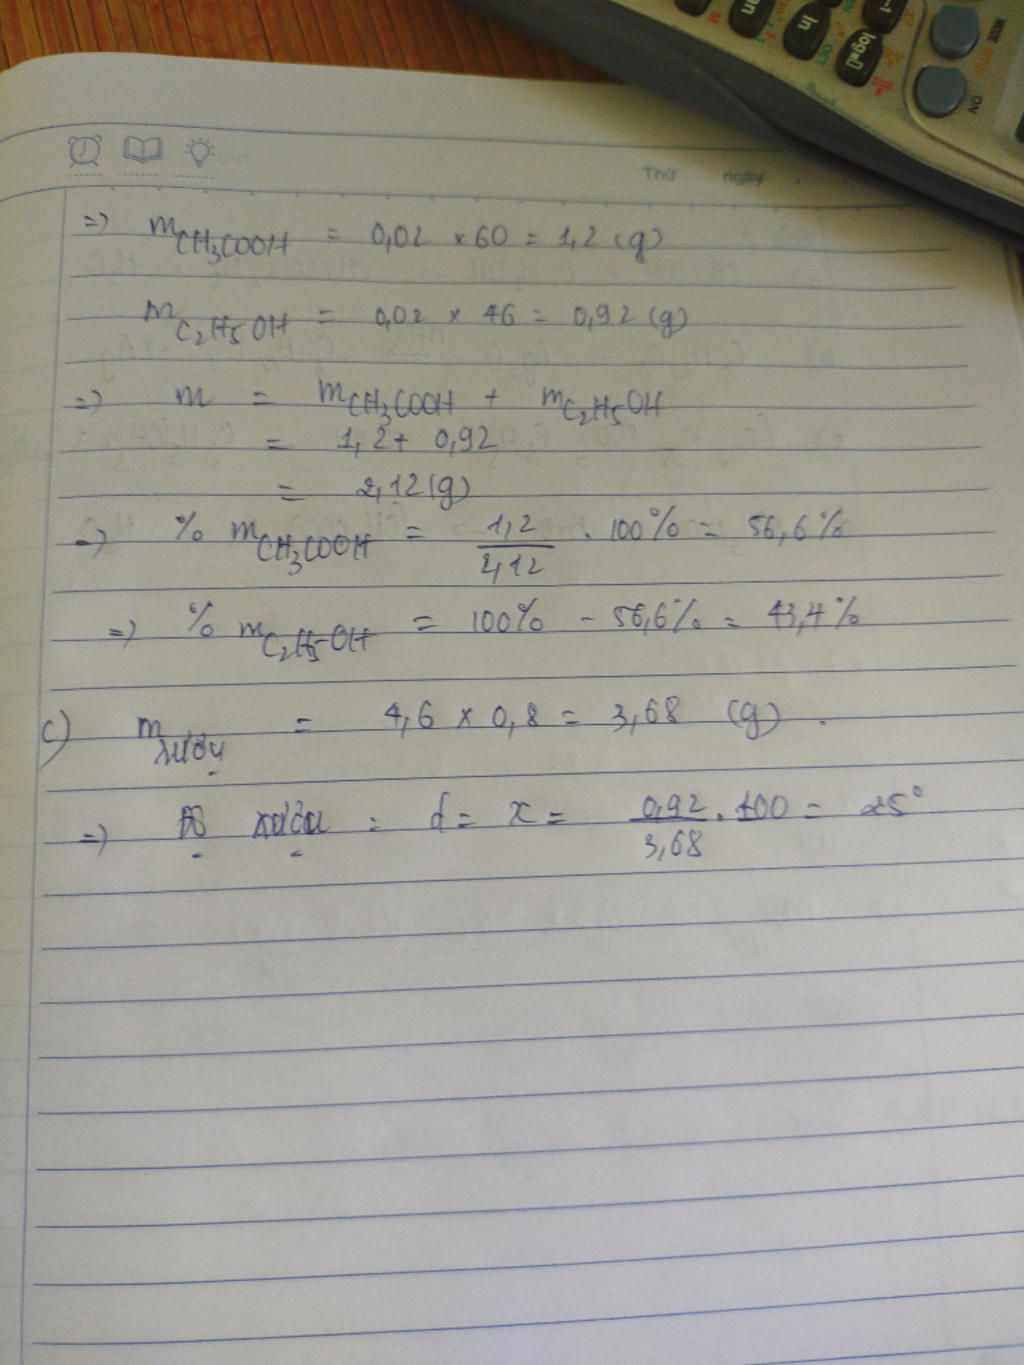 MODE
ON
ln
log
Thứ ngày
=> mCH3COOH = 0,02 × 60 = 1,2 (g)
mC2H5OH = 0,02 × 46 = 0,92 (g)
=> m = mCH3COOH + mC2H5OH
= 1,2 + 0,92
= 2,12 (g)
=> % mCH3COOH = 1,2/2,12 . 100% = 56,6%
=> % mC2H5OH = 100% - 56,6% = 43,4%
c) mrượu = 4,6 × 0,8 = 3,68 (g).
=> Độ rượu = d = x = 0,92/3,68 . 100 = 25°